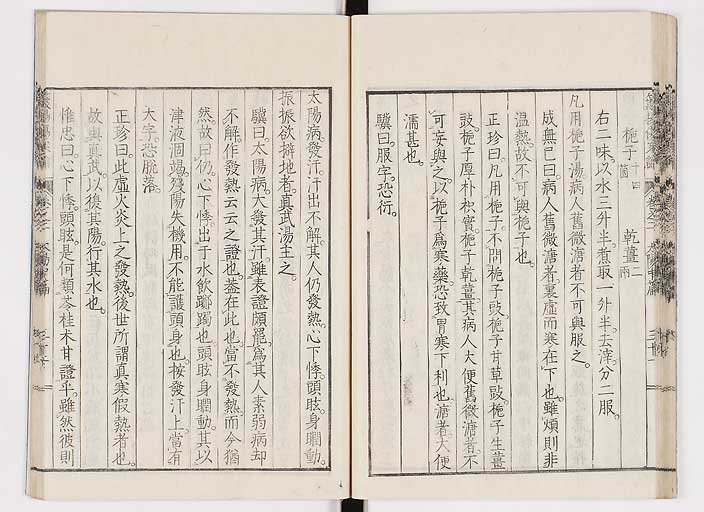 梔子十四箇 乾薑二兩
右二味。以水三升半。煮取一升半。去滓。分二服。
凡用梔子湯。病人舊微溏者。不可與服之。
成無已曰。病人舊微溏者。裏虛而寒在下也。雖煩則非
溫熱故。不可與梔子也。
正珍曰。凡用梔子。不問梔子豉。梔子甘草豉。梔子生薑
豉。梔子厚朴枳實。梔子乾薑。其病人大便舊微溏者。不
可妄與之。以梔子為寒藥。恐致胃寒下利也。溏者。大便
濡甚也。
驥曰。服字恐衍。
太陽病。發汗。汗出不解。其人仍發熱。心下悸。頭眩。身瞤動。
振振欲擗地者。真武湯主之。
驥曰。太陽病。大發其汗。雖表證頗罷。為其人素弱。病却
不解。作發熱云云之證也。葢在此也。當不發熱。而今猶
然。故曰仍。心下悸。出于水飲躑躅也。頭眩身瞤動。其以
津液涸竭。殘陽失機用。不能護頭身也。按發汗上。當有
大字。恐脫落。
正珍曰。此虛火炎上之發熱。後世所謂真寒假熱者也。
故與真武。以復其陽。行其水也。
惟忠曰。心下悸頭眩。是何類苓桂朮甘證乎。雖然彼則